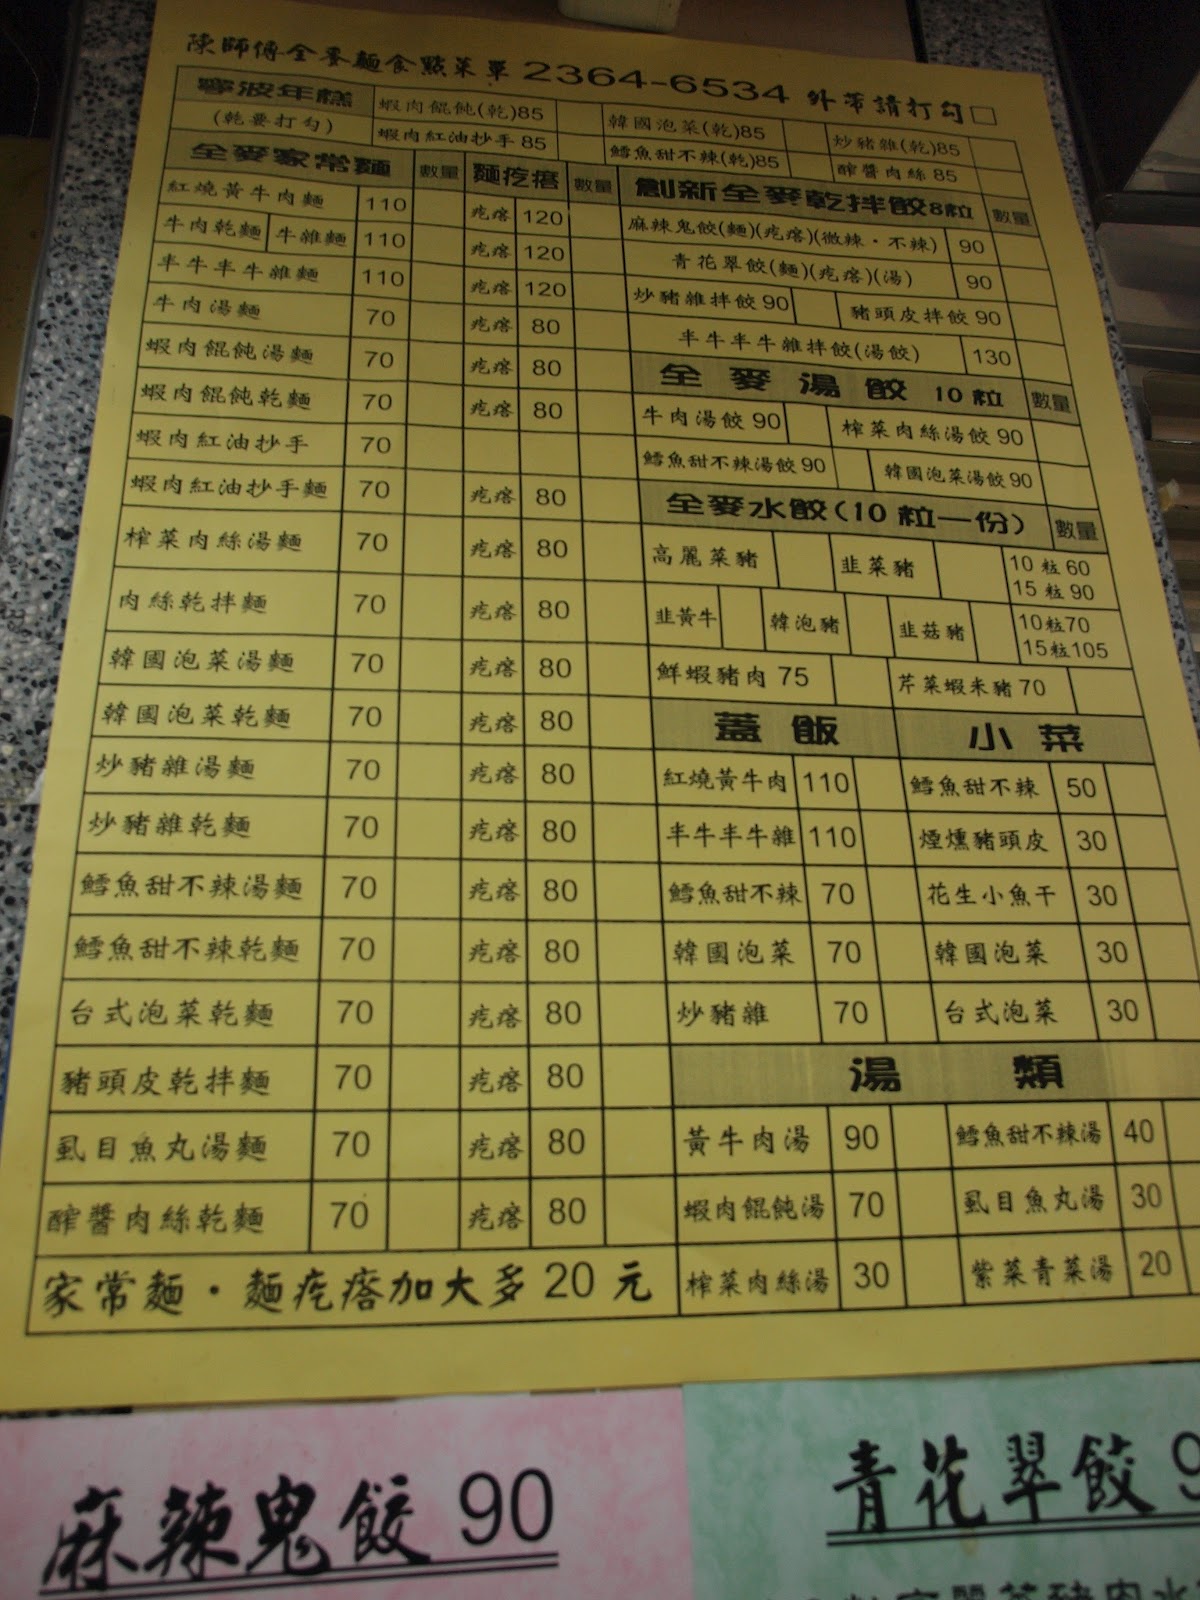 陳師傅全麥麵食點菜單 2364-6534 外帶請打勾□
寧波年糕 蝦肉餛飩(乾)85 韓國泡菜(乾)85 炒豬雜(乾)85
(乾要打勾) 蝦肉紅油抄手 85 鱈魚甜不辣(乾)85 醡醬肉絲 85
全麥家常麵 數量 麵疙瘩 數量
紅燒黃牛肉麵 110 疙瘩 120
牛肉乾麵 牛雜麵 110 疙瘩 120
半牛半牛雜麵 110 疙瘩 120
牛肉湯麵 70 疙瘩 80
蝦肉餛飩湯麵 70 疙瘩 80
蝦肉餛飩乾麵 70 疙瘩 80
蝦肉紅油抄手 70
蝦肉紅油抄手麵 70 疙瘩 80
榨菜肉絲湯麵 70 疙瘩 80
肉絲乾拌麵 70 疙瘩 80
韓國泡菜湯麵 70 疙瘩 80
韓國泡菜乾麵 70 疙瘩 80
炒豬雜湯麵 70 疙瘩 80
炒豬雜乾麵 70 疙瘩 80
鱈魚甜不辣湯麵 70 疙瘩 80
鱈魚甜不辣乾麵 70 疙瘩 80
台式泡菜乾麵 70 疙瘩 80
豬頭皮乾拌麵 70 疙瘩 80
虱目魚丸湯麵 70 疙瘩 80
醡醬肉絲乾麵 70 疙瘩 80
家常麵・麵疙瘩加大多 20 元
創新全麥乾拌餃8粒 數量
麻辣鬼餃(麵)(疙瘩)(微辣・不辣) 90
青花翠餃(麵)(疙瘩)(湯) 90
炒豬雜拌餃 90 豬頭皮拌餃 90
半牛半牛雜拌餃(湯餃) 130
全麥湯餃 10粒 數量
牛肉湯餃 90 榨菜肉絲湯餃 90
鱈魚甜不辣湯餃 90 韓國泡菜湯餃 90
全麥水餃(10粒一份) 數量
高麗菜豬 韭菜豬 10 粒 60
15 粒 90
韭黃牛 韓泡豬 韭菇豬 10粒70
15粒105
鮮蝦豬肉 75 芹菜蝦米豬 70
蓋飯 小菜
紅燒黃牛肉 110 鱈魚甜不辣 50
半牛半牛雜 110 煙燻豬頭皮 30
鱈魚甜不辣 70 花生小魚干 30
韓國泡菜 70 韓國泡菜 30
炒豬雜 70 台式泡菜 30
湯類
黃牛肉湯 90 鱈魚甜不辣湯 40
蝦肉餛飩湯 70 虱目魚丸湯 30
榨菜肉絲湯 30 紫菜青菜湯 20
麻辣鬼餃 90
青花翠餃 9